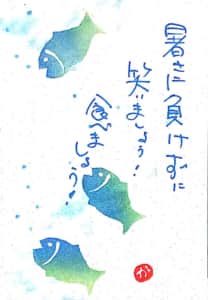 暑さに負けずに
笑いましょう!
食べましょう!
か